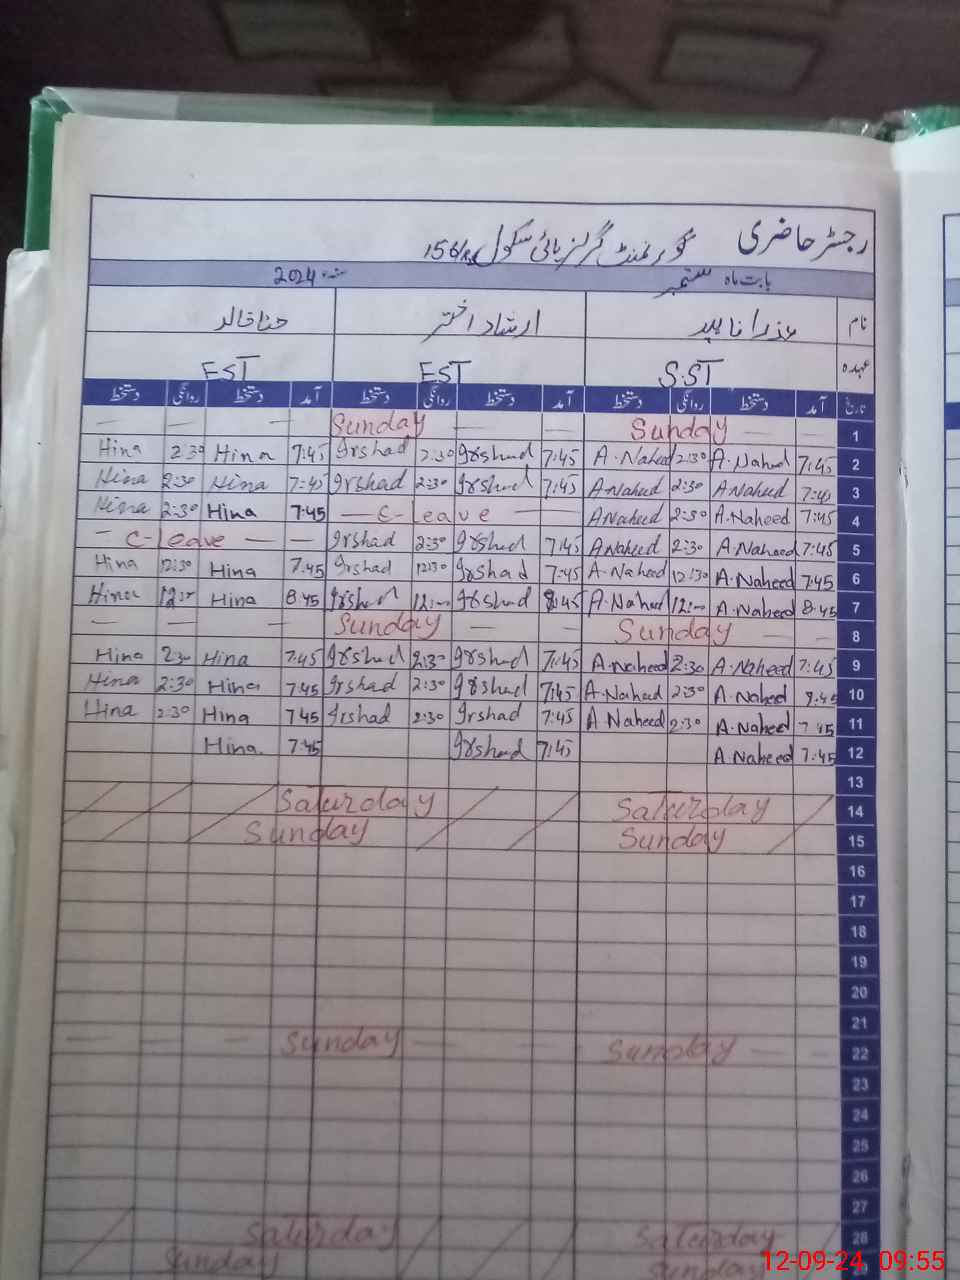 رجسٹر حاضری گورنمنٹ گرلز ہائی سکول 156/
بابت ماہ ستمبر 2024ء
نام عذرا ناہید ارشاد اختر حنا خالد
عہدہ S.ST EST EST
تاریخ آمد دستخط روانگی دستخط آمد دستخط روانگی دستخط آمد دستخط روانگی دستخط
— — — Sunday — — Sunday — — 1
Hina 2:30 Hina 7:45 Irshad 2:30 Irshad 7:45 A.Naheed 2:30 A.Naheed 7:45 2
Hina 2:30 Hina 7:45 Irshad 2:30 Irshad 7:45 A.Naheed 2:30 A.Naheed 7:45 3
Hina 2:30 Hina 7:45 — C-Leave — A.Naheed 2:30 A.Naheed 7:45 4
— C-Leave — — Irshad 2:30 Irshad 7:45 A.Naheed 2:30 A.Naheed 7:45 5
Hina 12:30 Hina 7:45 Irshad 12:30 Irshad 7:45 A.Naheed 12:30 A.Naheed 7:45 6
Hina Hina 8:45 Irshad 12:00 Irshad 8:45 A.Naheed 12:00 A.Naheed 8:45 7
— — — Sunday — — Sunday — — 8
Hina 2:30 Hina 7:45 Irshad 2:30 Irshad 7:45 A.Naheed 2:30 A.Naheed 7:45 9
Hina 2:30 Hina 7:45 Irshad 2:30 Irshad 7:45 A.Naheed 2:30 A.Naheed 10
Hina 2:30 Hina 7:45 Irshad 2:30 Irshad 7:45 A.Naheed 2:30 A.Naheed 7:45 11
Hina 7:45 Irshad 7:45 A.Naheed 7:45 12
13
Saturday Saturday 14
Sunday Sunday 15
16
17
18
19
20
21
— — — Sunday — — Sunday — — 22
23
24
25
26
27
Saturday Saturday 28
Sunday Sunday
12-09-24, 09:55